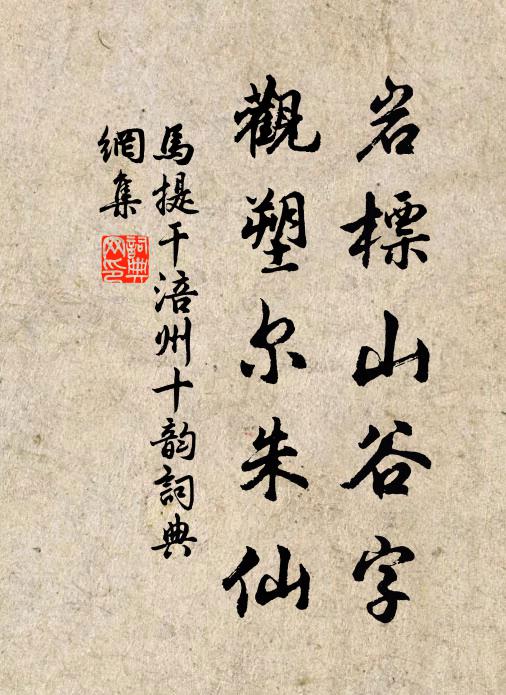 岩標山谷字
觀塑尔朱仙
馬提干涪州十韵詞典
網集
詞典网印